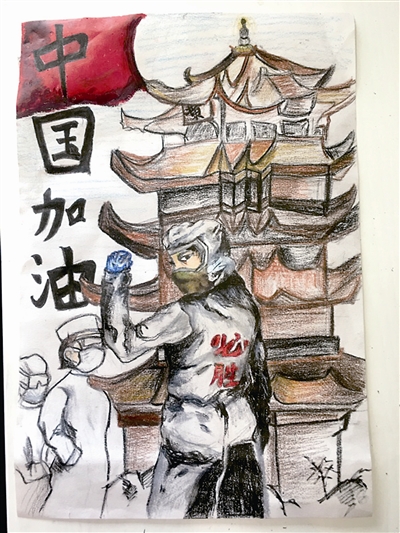 中国加油
必胜